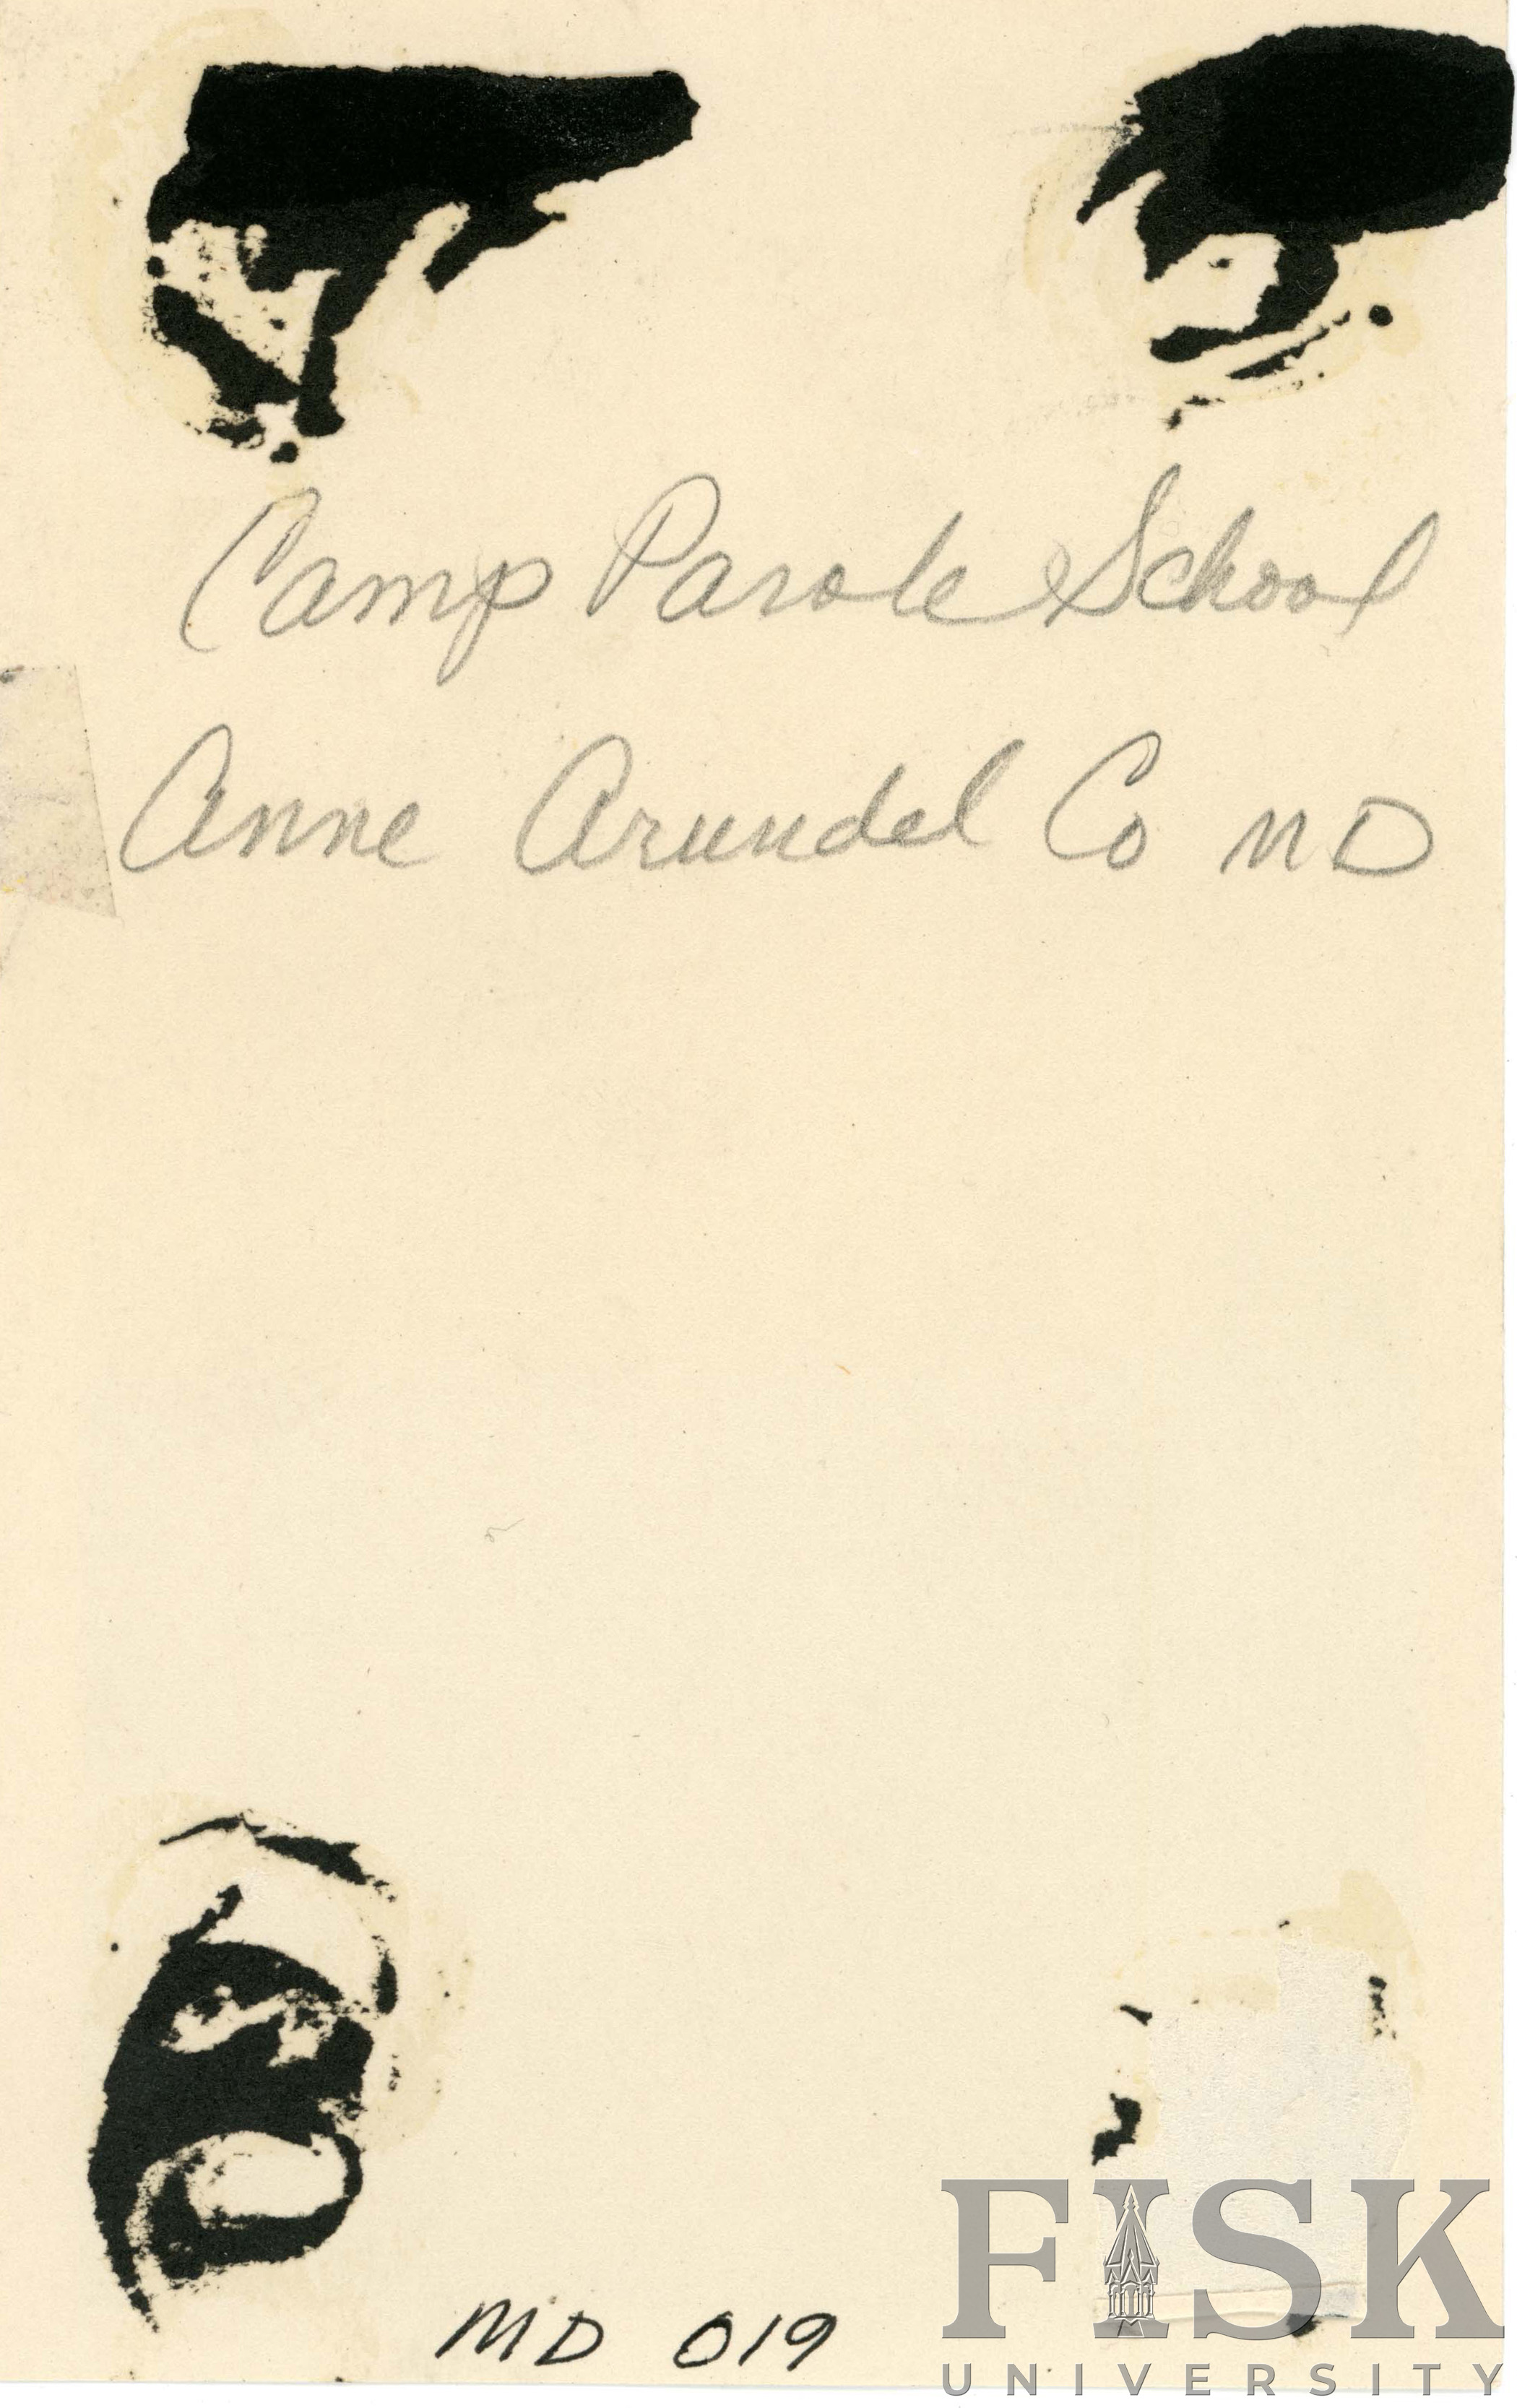 Camp Parole School
Anne Arundel Co MD
MD 019
FISK
UNIVERSITY